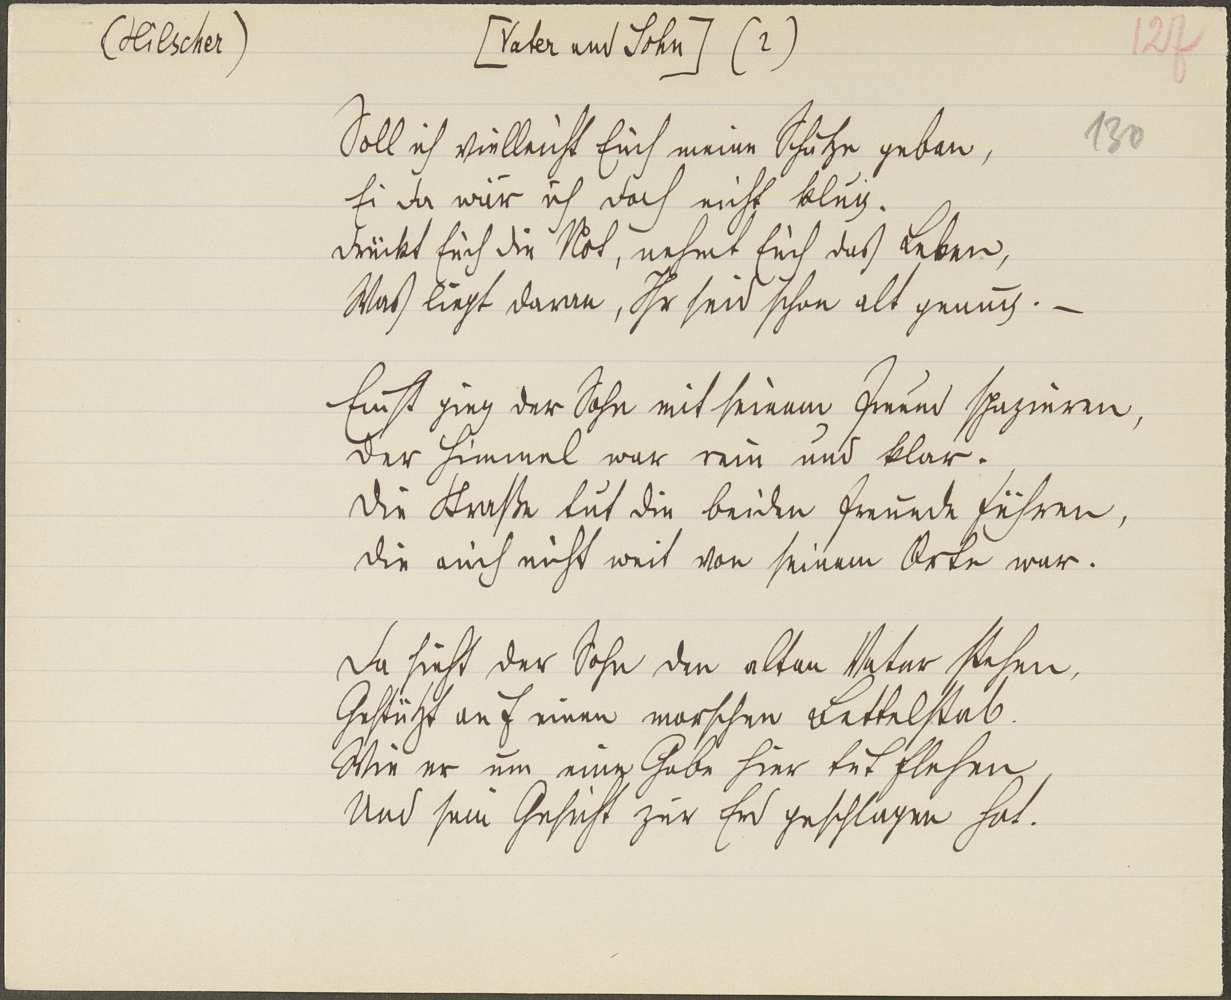 (Hilscher) [Vater und Sohn] (2) 12f
130
Soll ich vielleicht Euch meine Schätze geben,
Ei da wär ich doch nicht klug.
Drückt Euch die Not, nehmt Euch das Leben,
Was liegt daran, Ihr seid schon alt genug. –
Einst ging der Sohn mit seinem Freund spazieren,
Der Himmel war rein und klar.
Die Straße tut die beiden Freunde führen,
Die auch nicht weit von seinem Orte war.
Da sieht der Sohn den alten Vater stehen,
Gestützt auf einen morschen Bettelstab.
Wie er um eine Gabe hier tut flehen,
Und sein Gesicht zur Erd geschlagen hat.